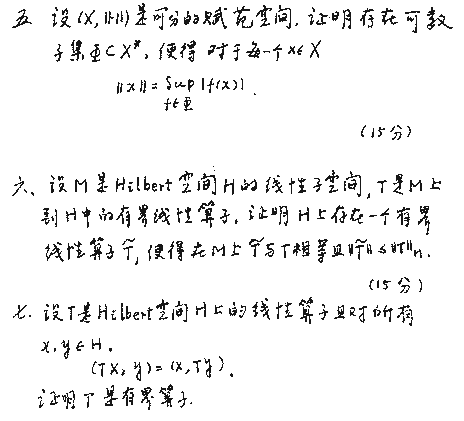 五 设(X,‖·‖)是可分的赋范空间,证明存在可数
子集Φ⊂X*,使得对于每一个x∈X
‖x‖= Sup |f(x)|.
f∈Φ
(15分)
六、设M是Hilbert空间H的线性子空间,T是M上
到H中的有界线性算子,证明H上存在一个有界
线性算子T̃,使得在M上T̃与T相等且‖T̃‖≤‖T‖_M.
(15分)
七. 设T是Hilbert空间H上的线性算子且对所有
x,y∈H,
(Tx,y)=(x,Ty),
证明T是有界算子.